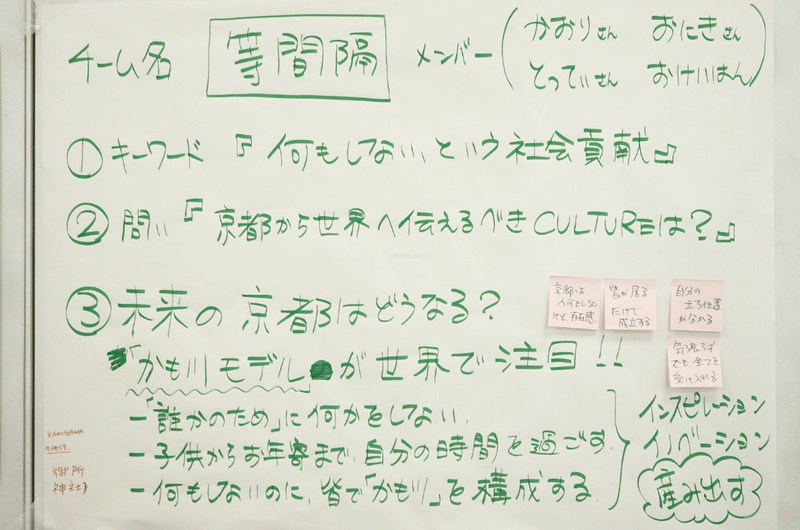 チーム名 等間隔 メンバー (かおりさん おにきさん
とってぃさん おけいはん)
① キーワード 『何もしない、という社会貢献』
② 問い 『京都から世界へ伝えるべきCULTUREは?』
③ 未来の京都はどうなる?
京都は
何もしない
けど、存在感
皆が居る
だけで
成立する
自分の
立ち位置
が分かる
気を張らず
でも全てを
受け入れる
「かも川モデル」が世界で注目!!
ー「誰かのため」に何かをしない.
ー子供からお年寄まで、自分の時間を過ごす.
ー何もしないのに、皆で「かも川」を構成する.
インスピレーション
イノベーション
産み出す
KAMOGAWA
御所
神社